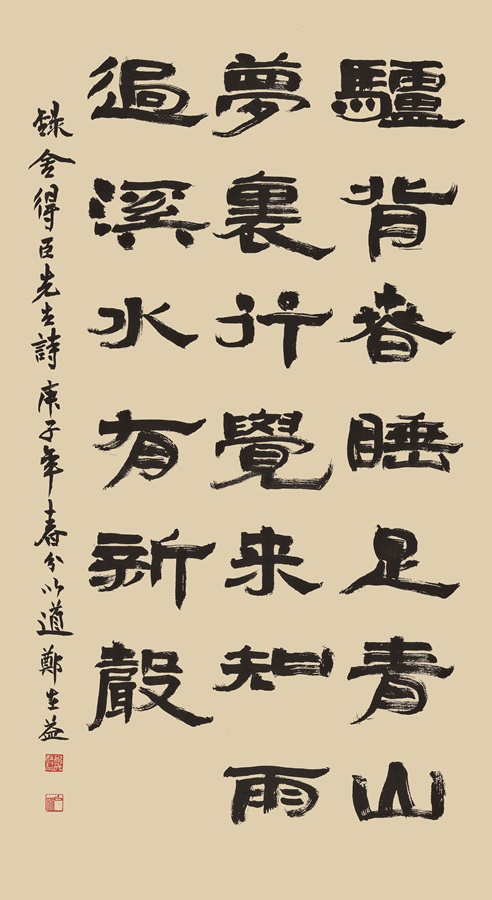 驢背春睡足青山
夢裏行覺来知雨
過溪水有新聲
錄金得臣先生詩 庚子年春分 以道 鄭在益